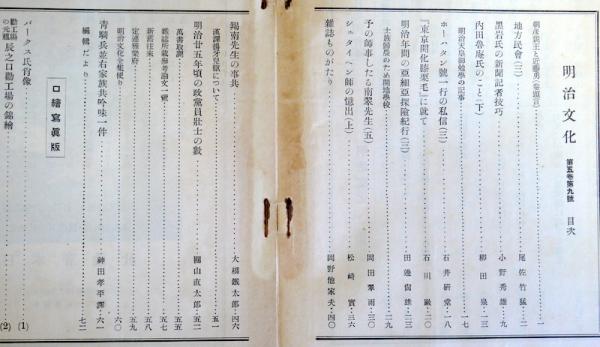 明治文化 第五卷第九號 目次
朝彦親王と近藤勇(卷頭言)…一
地方民會(二)…尾佐竹猛…二
黑岩氏の新聞記者技巧…小野秀雄…九
内田魯庵氏のこと(下)…柳田泉…一三
明治天皇御敎學の記事…一七
ホーハタン號一行の私信(三)…石井研堂…一八
『東京開化膝栗毛』に就て…石川巖…二〇
明治年間の亞細亞探險紀行(二)…田邊尙雄…二三
士族歸農のため開地學校…二九
予の師事したる南翠先生(五)…岡田翠雨…三〇
シュタイヘン師の憶出(上)…松崎實…三六
雜誌ものがたり…岡野他家夫…四〇
羯南先生の事共…大槻鐵太郎…四六
漢譯揚牙兒獄について…五一
明治廿五年頃の政黨員壯士の數…圓山直太郎…五二
萬書取調…五五
雜誌所載參考論文一覽…五七
新舊往來…五八
定遠雅樂府…五九
明治文化全集便り…六〇
靑騎兵並右家族共吟味一件…神田孝平譯…六一
編輯だより…七二
口繪寫眞版
パークス氏肖像…(1)
勸工場の元祖 辰之口勸工場の錦繪…(2)